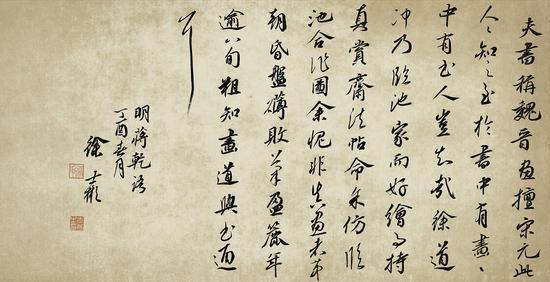 夫書稱魏晉畫擅宋元此
人々知之至於書中有畫々
中有書人豈知哉徐道
冲乃臨池家而好繪事持
真賞齋法帖命余仿臨
池合作圖余愧非真畫者第
朝昏盤礴敗筆盈簏年
逾八旬粗知畫道與書通
耳
明蔣乾語
丁酉春月
徐士彬